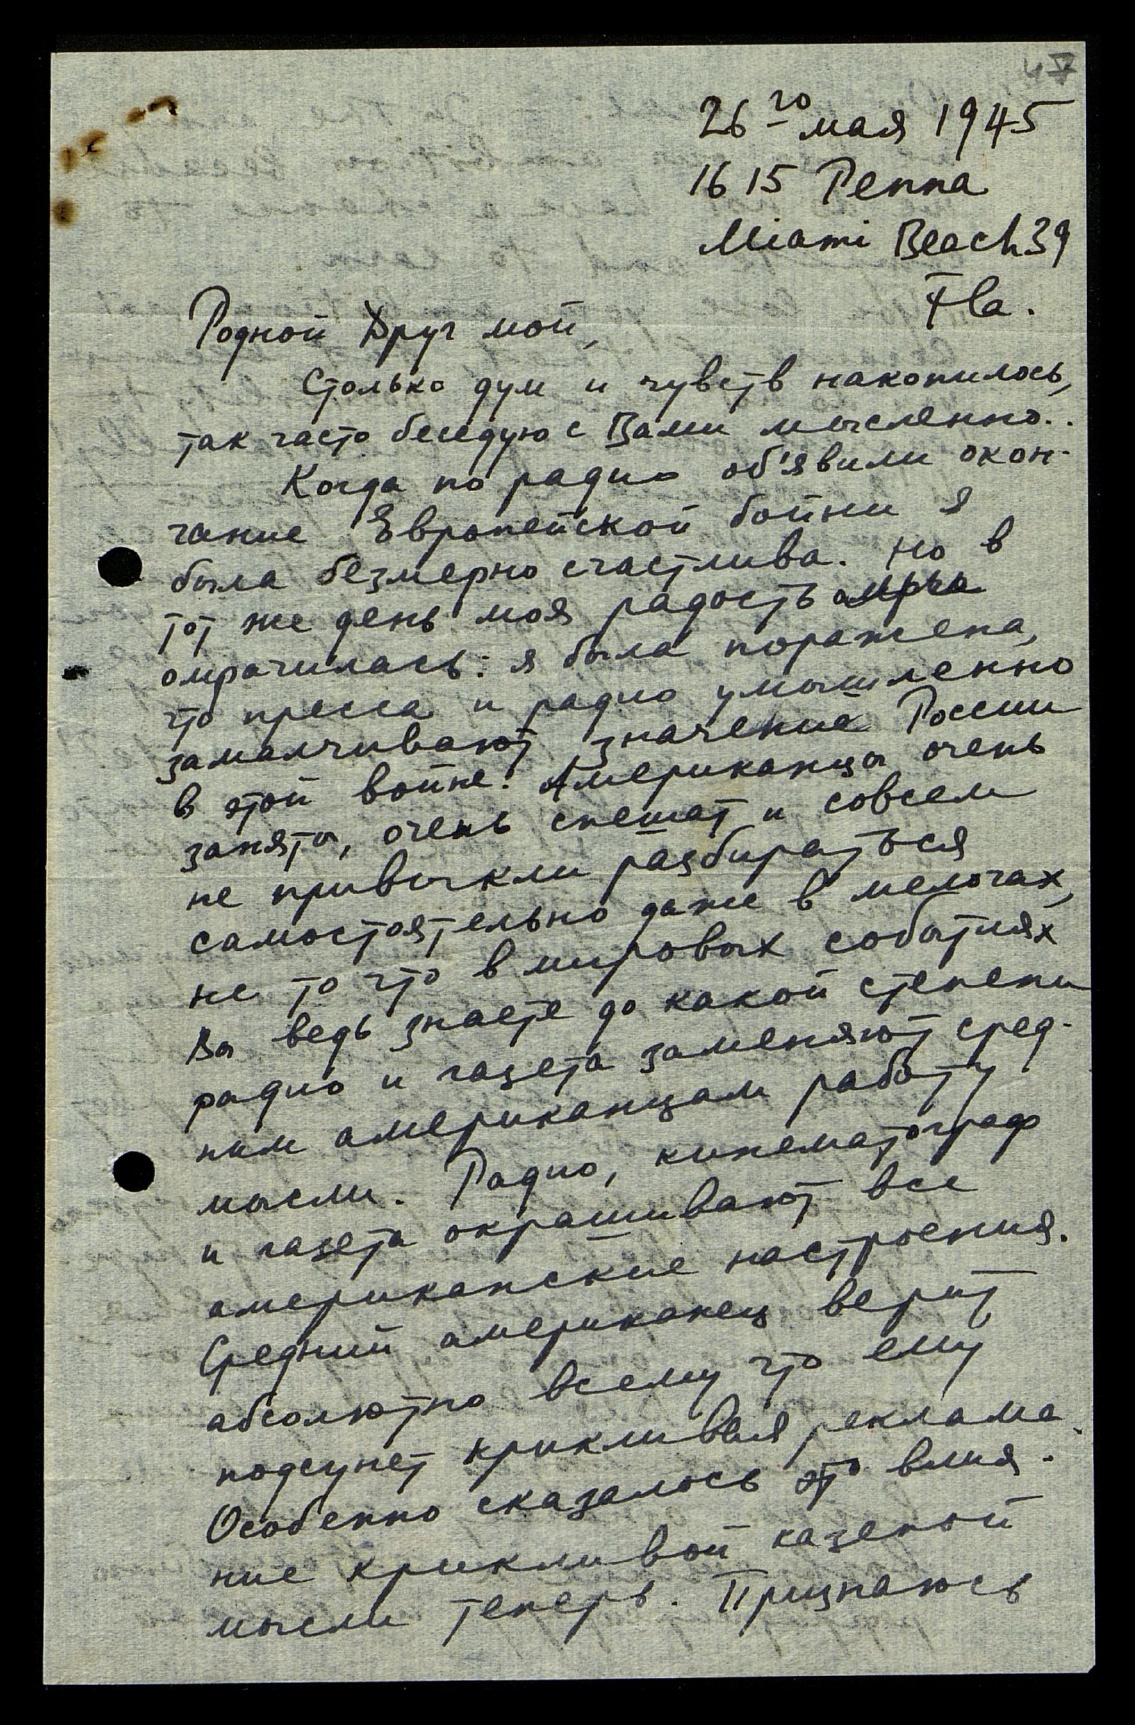 47
26го мая 1945
1615 Penna
Miami Beach 39
Fla.
Родной Друг мой,
Столько дум и чувств накопилось,
так часто беседую с Вами мысленно..
Когда по радио об'явили окон-
чание Европейской бойни я
была безмерно счастлива. Но в
тот же день моя радость
омрачилась: я была поражена,
что пресса и радио умышленно
замалчивают значение России
в этой войне. Американцы очень
заняты, очень спешат и совсем
не привыкли разбираться
самостоятельно даже в мелочах,
не то что в мировых событиях
Вы ведь знаете до какой степени
радио и газета заменяют сред-
ним американцам работу
мысли. Радио, кинематограф
и газета окрашивают все
американские настроения.
Средний американец верит
абсолютно всему что ему
подсунет крикливая реклама.
Особенно сказалось это влия-
ние крикливой казеной
мысли теперь. Признаюсь